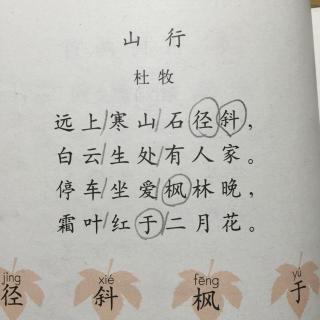 山 行
杜 牧
远上/寒山/石径斜，
白云/生处/有人家。
停车/坐爱/枫林晚，
霜叶/红于/二月花。
jìng xié fēng yú
径 斜 枫 于